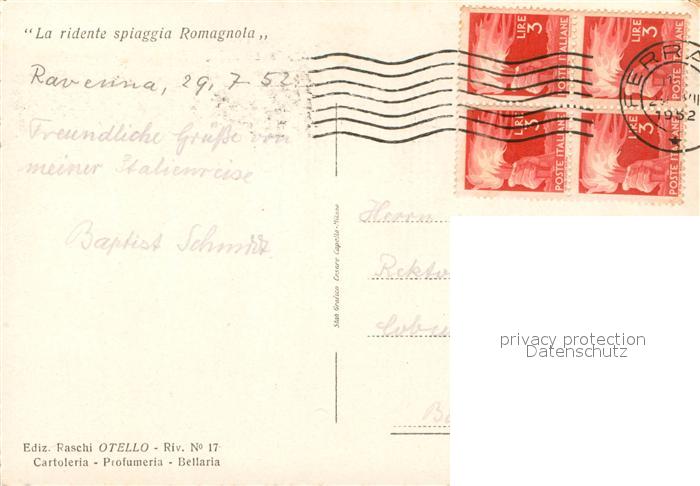 "La ridente spiaggia Romagnola„
Ravenna, 29. 7 52
Freundliche Grüße von
meiner Italienreise
Baptist Schmidt
LIRE 3
POSTE ITALIANE
LIRE 3
POSTE ITALIANE
LIRE 3
POSTE ITALIANE
LIRE 3
POSTE ITALIANE
FERRA
1952
Stab. Grafico Cesare Capello-Milano
Herrn
Rekto
Cobu
privacy protection
Datenschutz
Ediz. Raschi OTELLO - Riv. Nº 17
Cartoleria - Profumeria - Bellaria